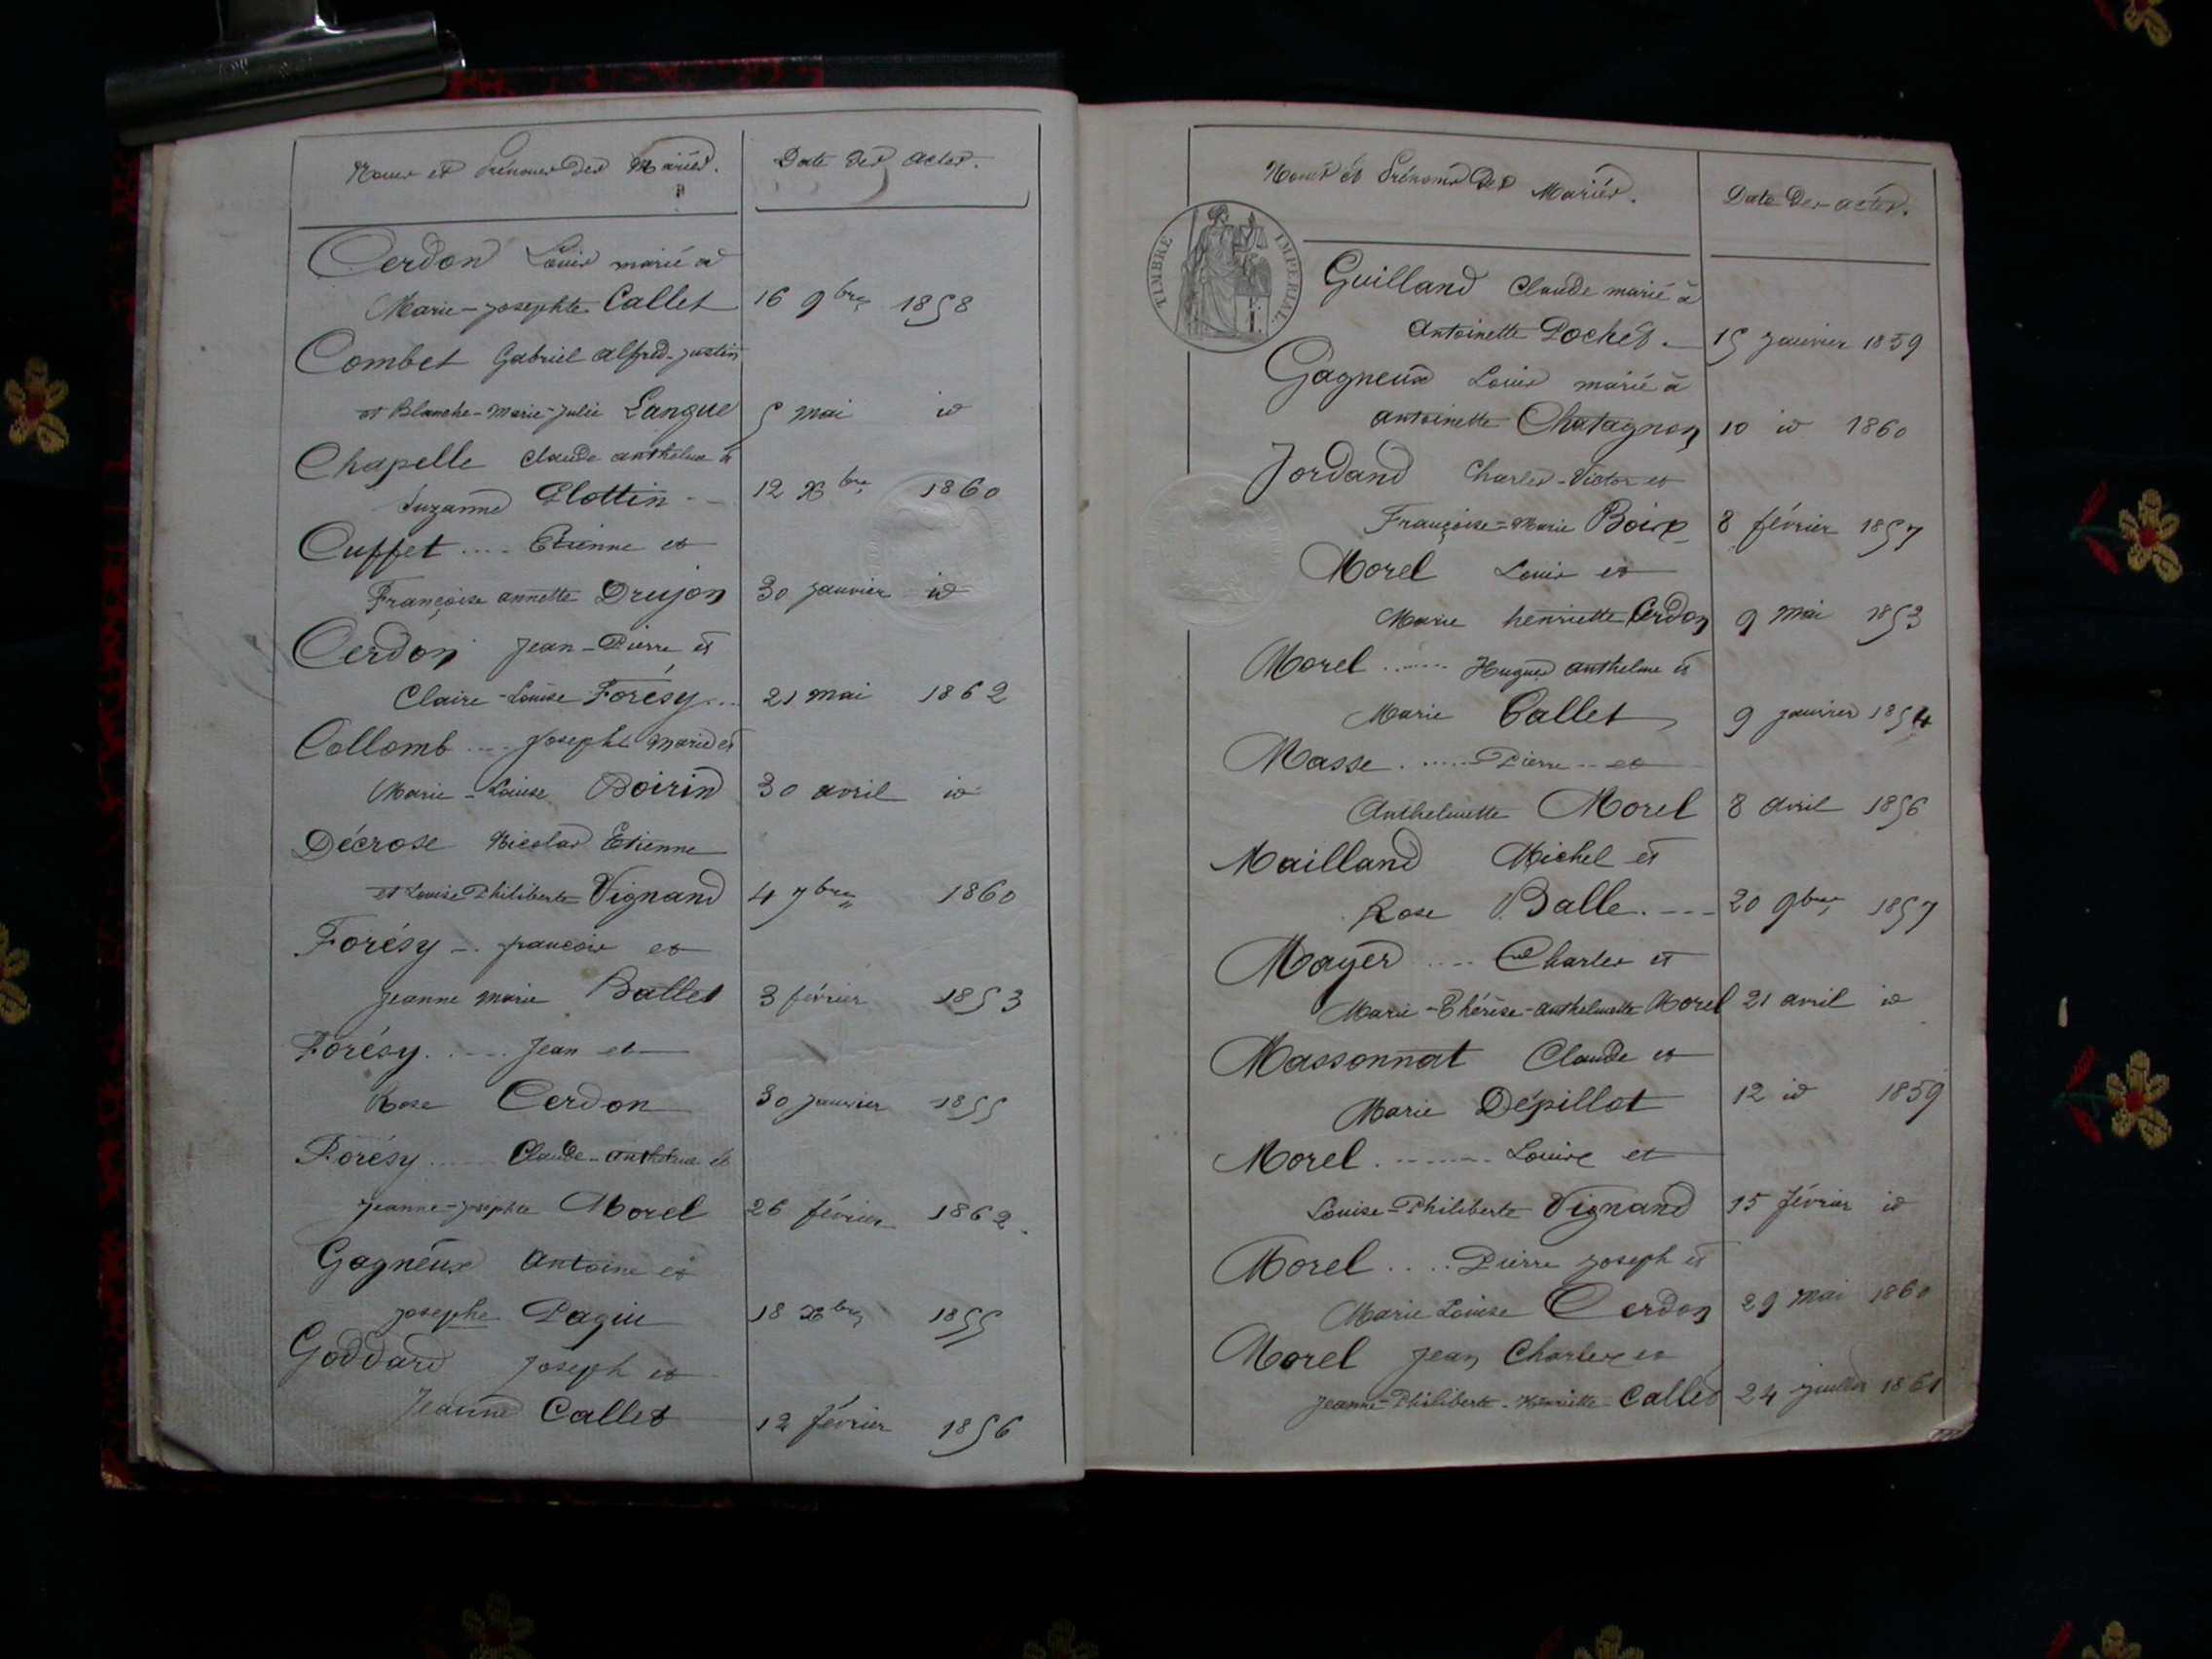 Noms et Prénoms des Mariés.
Date des actes.
Cerdon Louis marié à
Marie-Josephte Callet 16 9bre 1858
Combet Gabriel alfred-justin
et Blanche-Marie-Julie Langue 5 mai id
Chapelle Claude anthelme et
Suzanne Flottin 12 Xbre 1860
Cuffet .... Etienne et
Françoise annette Drujon 30 janvier id
Cerdon Jean-Pierre et
Claire-Louise Forésy... 21 mai 1862
Collomb .... Joseph Marie et
Marie-Louise Boirin 30 avril id
Décrose Nicolas Etienne
et Louise Philiberte Vignand 4 7bre 1860
Forésy -. françois et
Jeanne marie Ballet 3 février 1853
Forésy. .... Jean et
Rose Cerdon 30 janvier 1855
Forésy ...... Claude-anthelme et
Jeanne-Josephte Morel 26 février 1862.
Gagneux Antoine et
Josephe 18 Xbre 1855
Goddard Joseph et
Jeanne Callet 12 février 1856
Noms et Prénoms des Mariés.
Date des actes.
TIMBRE IMPERIAL
Guilland Claude marié à
Antoinette Pochet. 15 janvier 1859
Gagneux Louis marié à
antoinette Chatagnon 10 id 1860
Jordand Charles-Victor et
Françoise-Marie 8 février 1857
Morel Louis et
Marie henriette Cerdon 9 mai 1853
Morel ...... Hugues anthelme et
Marie Callet 9 janvier 1854
Masse ...... Pierre et
Anthelmette Morel 8 avril 1856
Mailland Michel et
Rose Balle. --- 20 9bre 1857
Mayer .... Charles et
Marie-Thérèse-anthelmette Morel 21 avril id
Massonnat Claude et
Marie Dépillot 12 id 1859
Morel ........ Louis et
Louise-Philiberte Vignand 15 février id
Morel .... Pierre joseph et
Marie Louise Cerdon 29 mai 1860
Morel Jean Charles et
Jeanne-Philiberte-Henriette Callet 24 juillet 1861